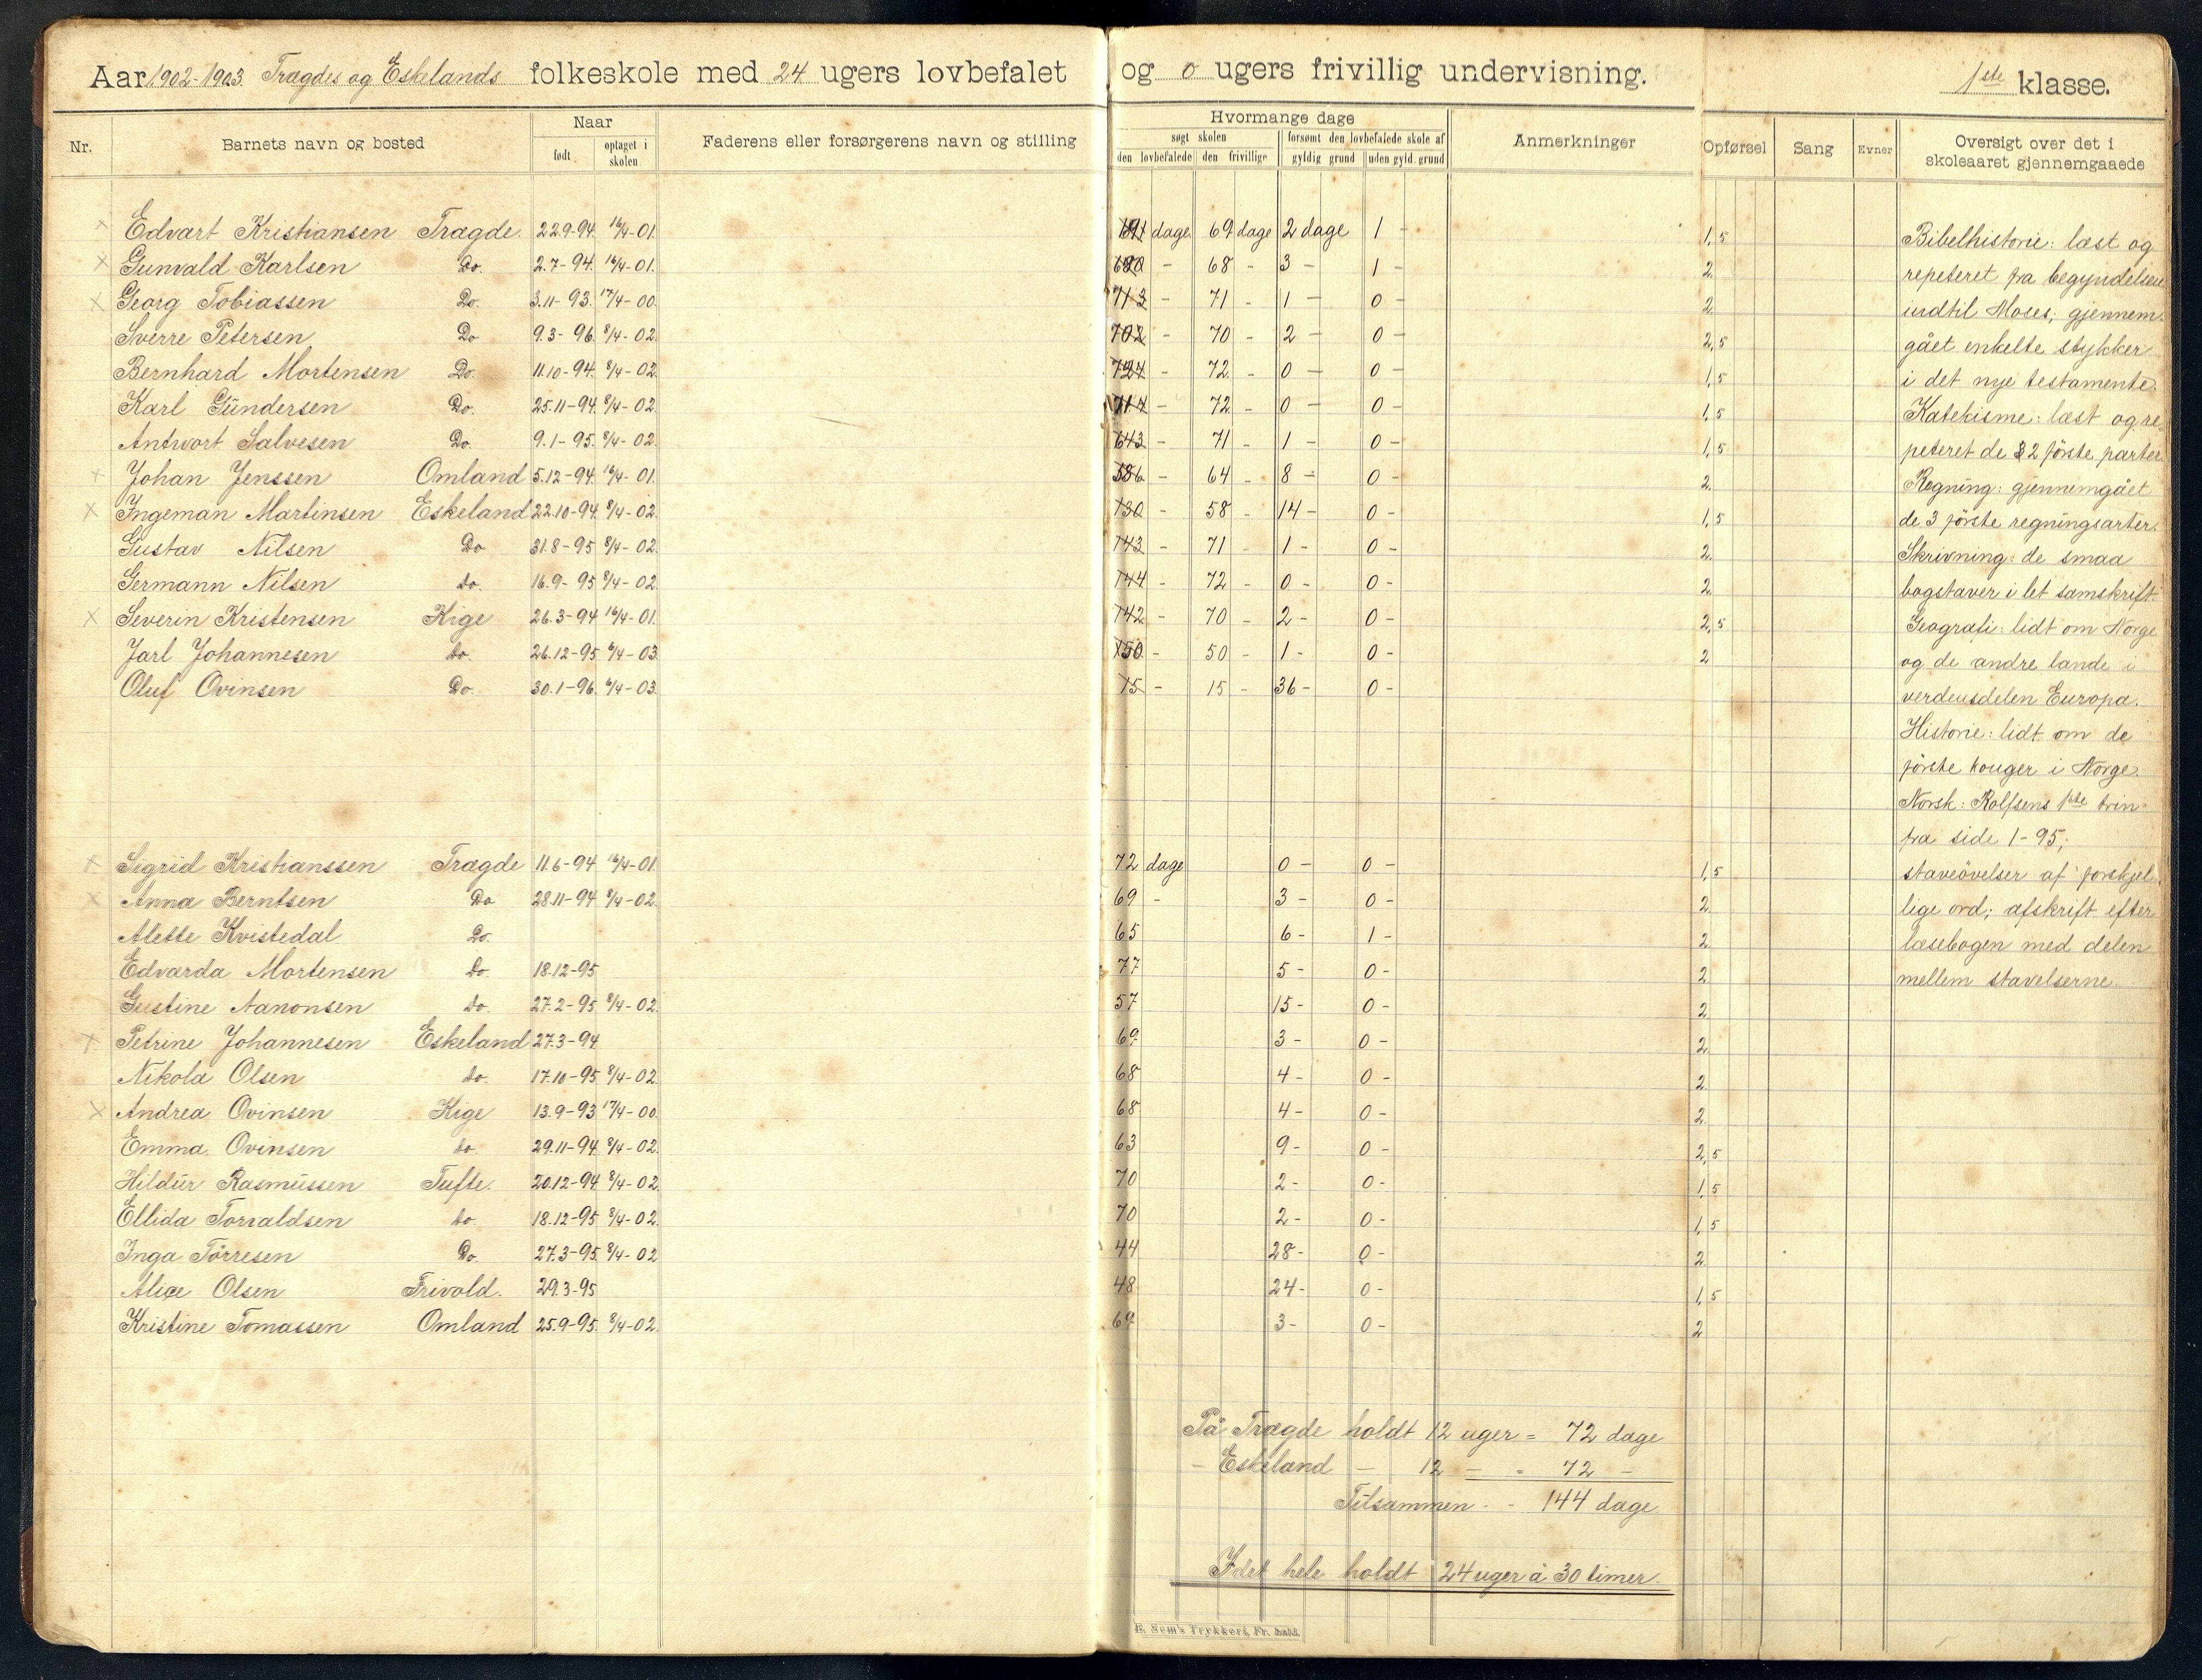 Aar 1902-1903 Trægdes og Eskelands folkeskole med 24 ugers lovbefalet og 0 ugers frivillig undervisning. 1ste klasse.
Nr. Barnets navn og bosted Naar født optaget i skolen Faderens eller forsørgerens navn og stilling Hvormange dage søgt skolen den lovbefalede den frivillige forsømt den lovbefalede skole af gyldig grund uden gyld. grund Anmerkninger Opførsel Sang Evner Oversigt over det i skoleaaret gjennemgaaede
Edvart Kristiansen Trægde. 22.9-94. 16/4-01. dage 69 dage 2 dage 1 - 1,5
Gunvald Karlsen Do. 2.7-94. 16/4-01. - 68 - 3 - 1 - 2
Georg Tobiassen Do. 3.11-93. 17/4-00. 713 - 71 - 1 - 0 - 2
Sverre Petersen Do 9.3-96. 8/4-02. 702 - 70 - 2 - 0 - 2,5
Bernhard Mortensen Do. 11.10-94. 8/4-02. 724 - 72 - 0 - 0 - 1,5
Karl Gundersen Do. 25.11-94. 8/4-02. - 72 - 0 - 0 - 1,5
Antwort Salvesen Do. 9.1-95. 8/4-02. 643 - 71 - 1 - 0 - 1,5
Johan Jenssen Omland 5.12-94. 16/4-01. - 64 - 8 - 0 - 2
Ingeman Martinsen Eskeland 22.10-94. 8/4-02. 130 - 58 - 14 - 0 - 1,5
Gustav Nilsen Do 31.8-95 8/4-02. 143 - 71 - 1 - 0 - 2
Germann Nilsen do. 16.9-95 8/4-02. 144 - 72 - 0 - 0 - 2
Severin Kristensen Kige 26.3-94 16/4-01. 142 - 70 - 2 - 0 - 2,5
Jarl Johannesen do. 26.12-95 6/4-03. 150 - 50 - 1 - 0 - 2
Oluf Ovinsen Do. 30.1-96. 6/4-03. 15 - 15 - 36 - 0 -
Sigrid Kristianssen Trægde 11.6-94 16/4-01. 72 dage 0 - 0 - 1,5
Anna Berntsen Do 28.11-94 8/4-02. 69 - 3 - 0 - 2
Alette Kvistedal Do. 65 6 - 1 - 2
Edvarda Mortensen Do. 18.12-95 77 5 - 0 - 2
Gustine Aanonsen do. 27.2-95 8/4-02. 57 15 - 0 - 2
Petrine Johannesen Eskeland 27.3-94 69 3 - 0 - 2
Nikola Olsen do. 17.10-95. 8/4-02. 68 4 - 0 - 2
Andrea Ovinsen Kige 13.9-93 17/4-00. 68 4 - 0 - 2
Emma Ovinsen do. 29.11-94. 8/4-02. 63 9 - 0 - 2,5
Hildur Rasmussen Tufte. 20.12-94. 8/4-02. 70 2 - 0 - 1,5
Ellida Torvaldsen do. 18.12-95 8/4-02. 70 2 - 0 - 1,5
Inga Tørresen Do. 27.3-95. 8/4-02 44 28 - 0 - 2
Alice Olsen Frivold. 29.3-95 48 24 - 0 - 1,5
Kristine Tomassen Omland 25.9-95. 8/4-02. 69 3 - 0 - 2
Bibelhistorie: læst og
repeteret fra begyndelsen
indtil Moses; gjennem-
gået enkelte stykker
i det nye testamente.
Katekisme: læst og re-
peteret de 2 første parter.
Regning: gjennemgået
de 3 første regningsarter.
Skrivning: de smaa
bogstaver i let samskrift.
Geografi: lidt om Norge
og de andre lande i
verdensdelen Europa.
Historie: lidt om de
første konger i Norge.
Norsk: Rolfsens 1ste trin
fra side 1-95;
staveøvelser af forskjel-
lige ord; afskrift efter
læsebogen med delen
mellem stavelserne.
På Trægde holdt 12 uger = 72 dage
- Eskeland - 12 - = 72 -
Tilsammen - - 144 dage
I det hele holdt 24 uger à 30 timer.
E. Sem's Trykkeri, Fr. hald.